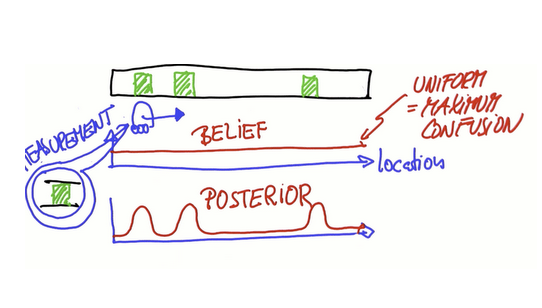 UNIFORM
= MAXIMUM
CONFUSION
MEASUREMENT
BELIEF
location
POSTERIOR